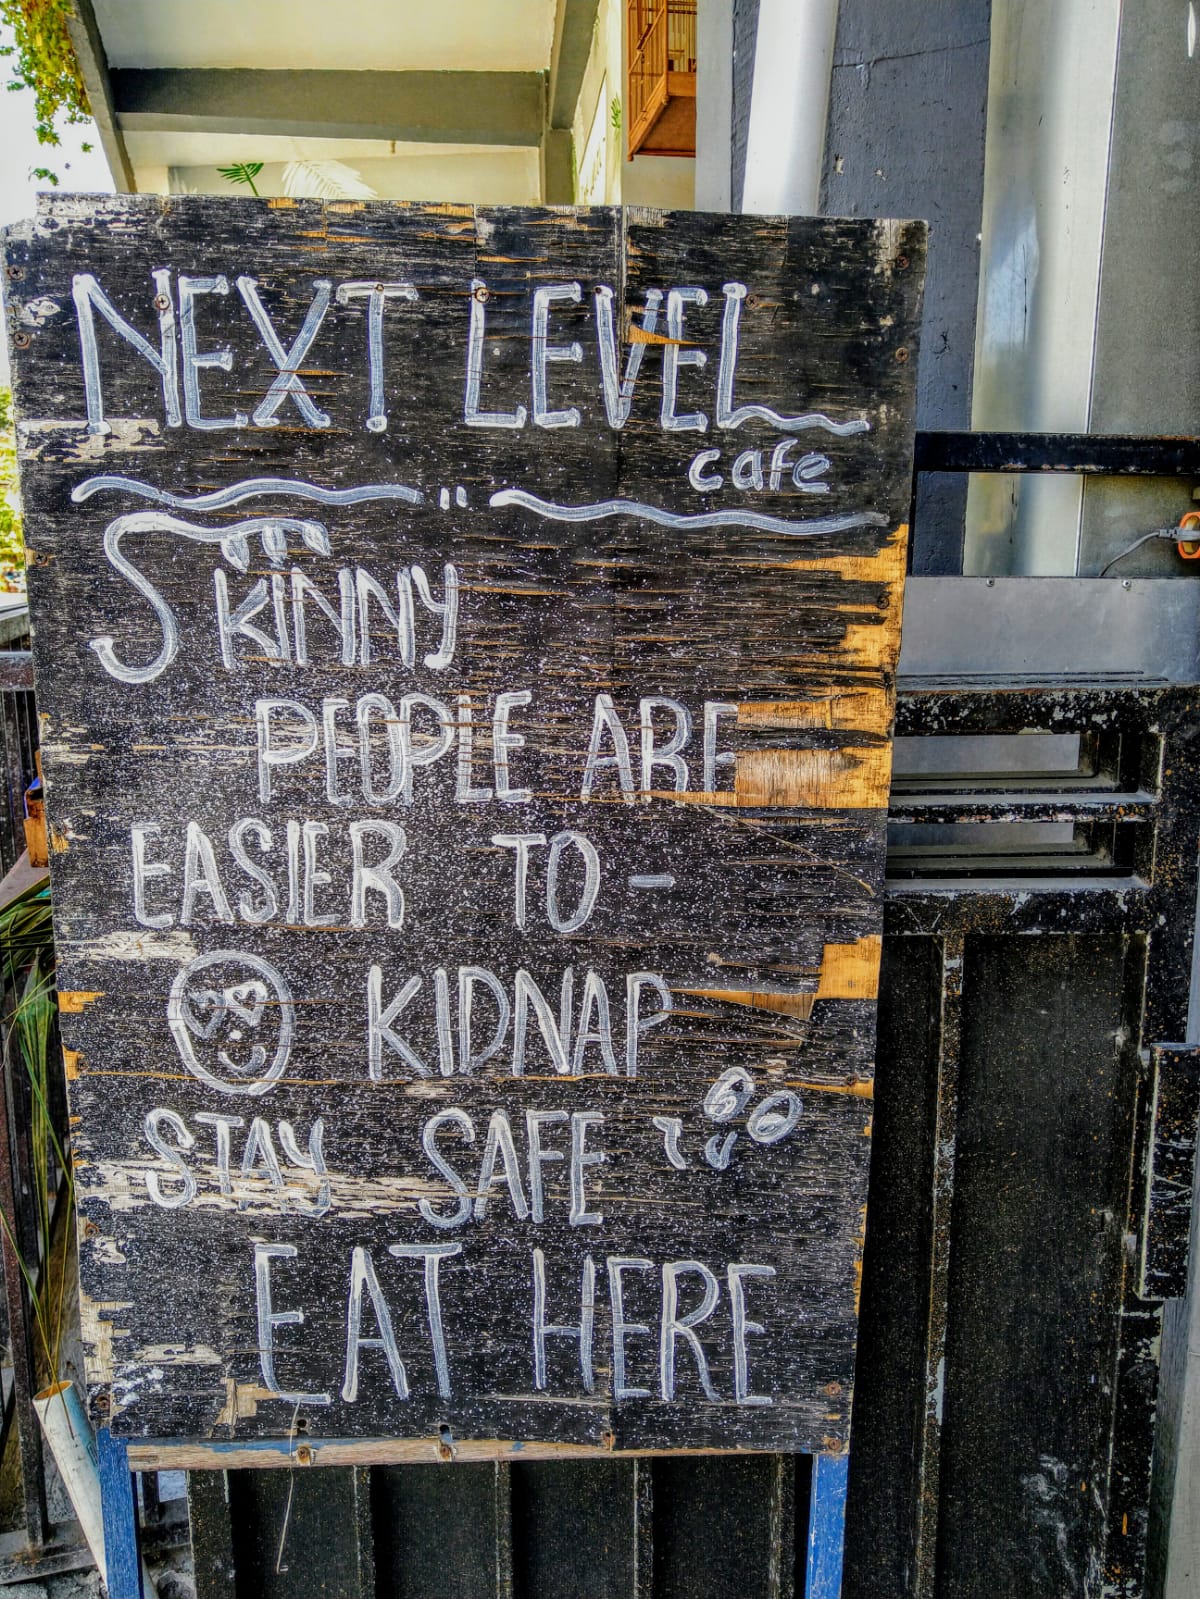 NEXT LEVEL
cafe
SKINNY
PEOPLE ARE
EASIER TO -
KIDNAP
STAY SAFE
EAT HERE